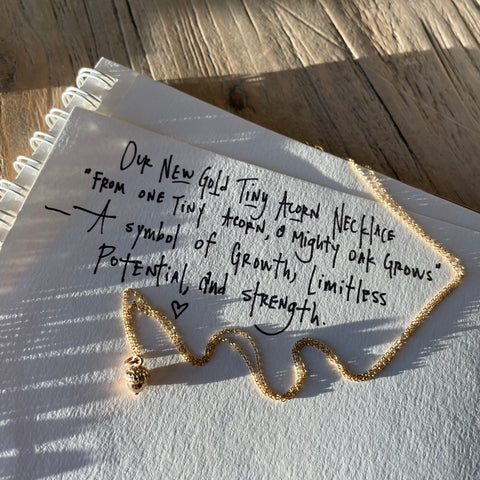 Our New Gold Tiny Acorn Necklace
"From one Tiny Acorn, a Mighty Oak Grows"
- A symbol of Growth, Limitless
Potential, and strength.
♡